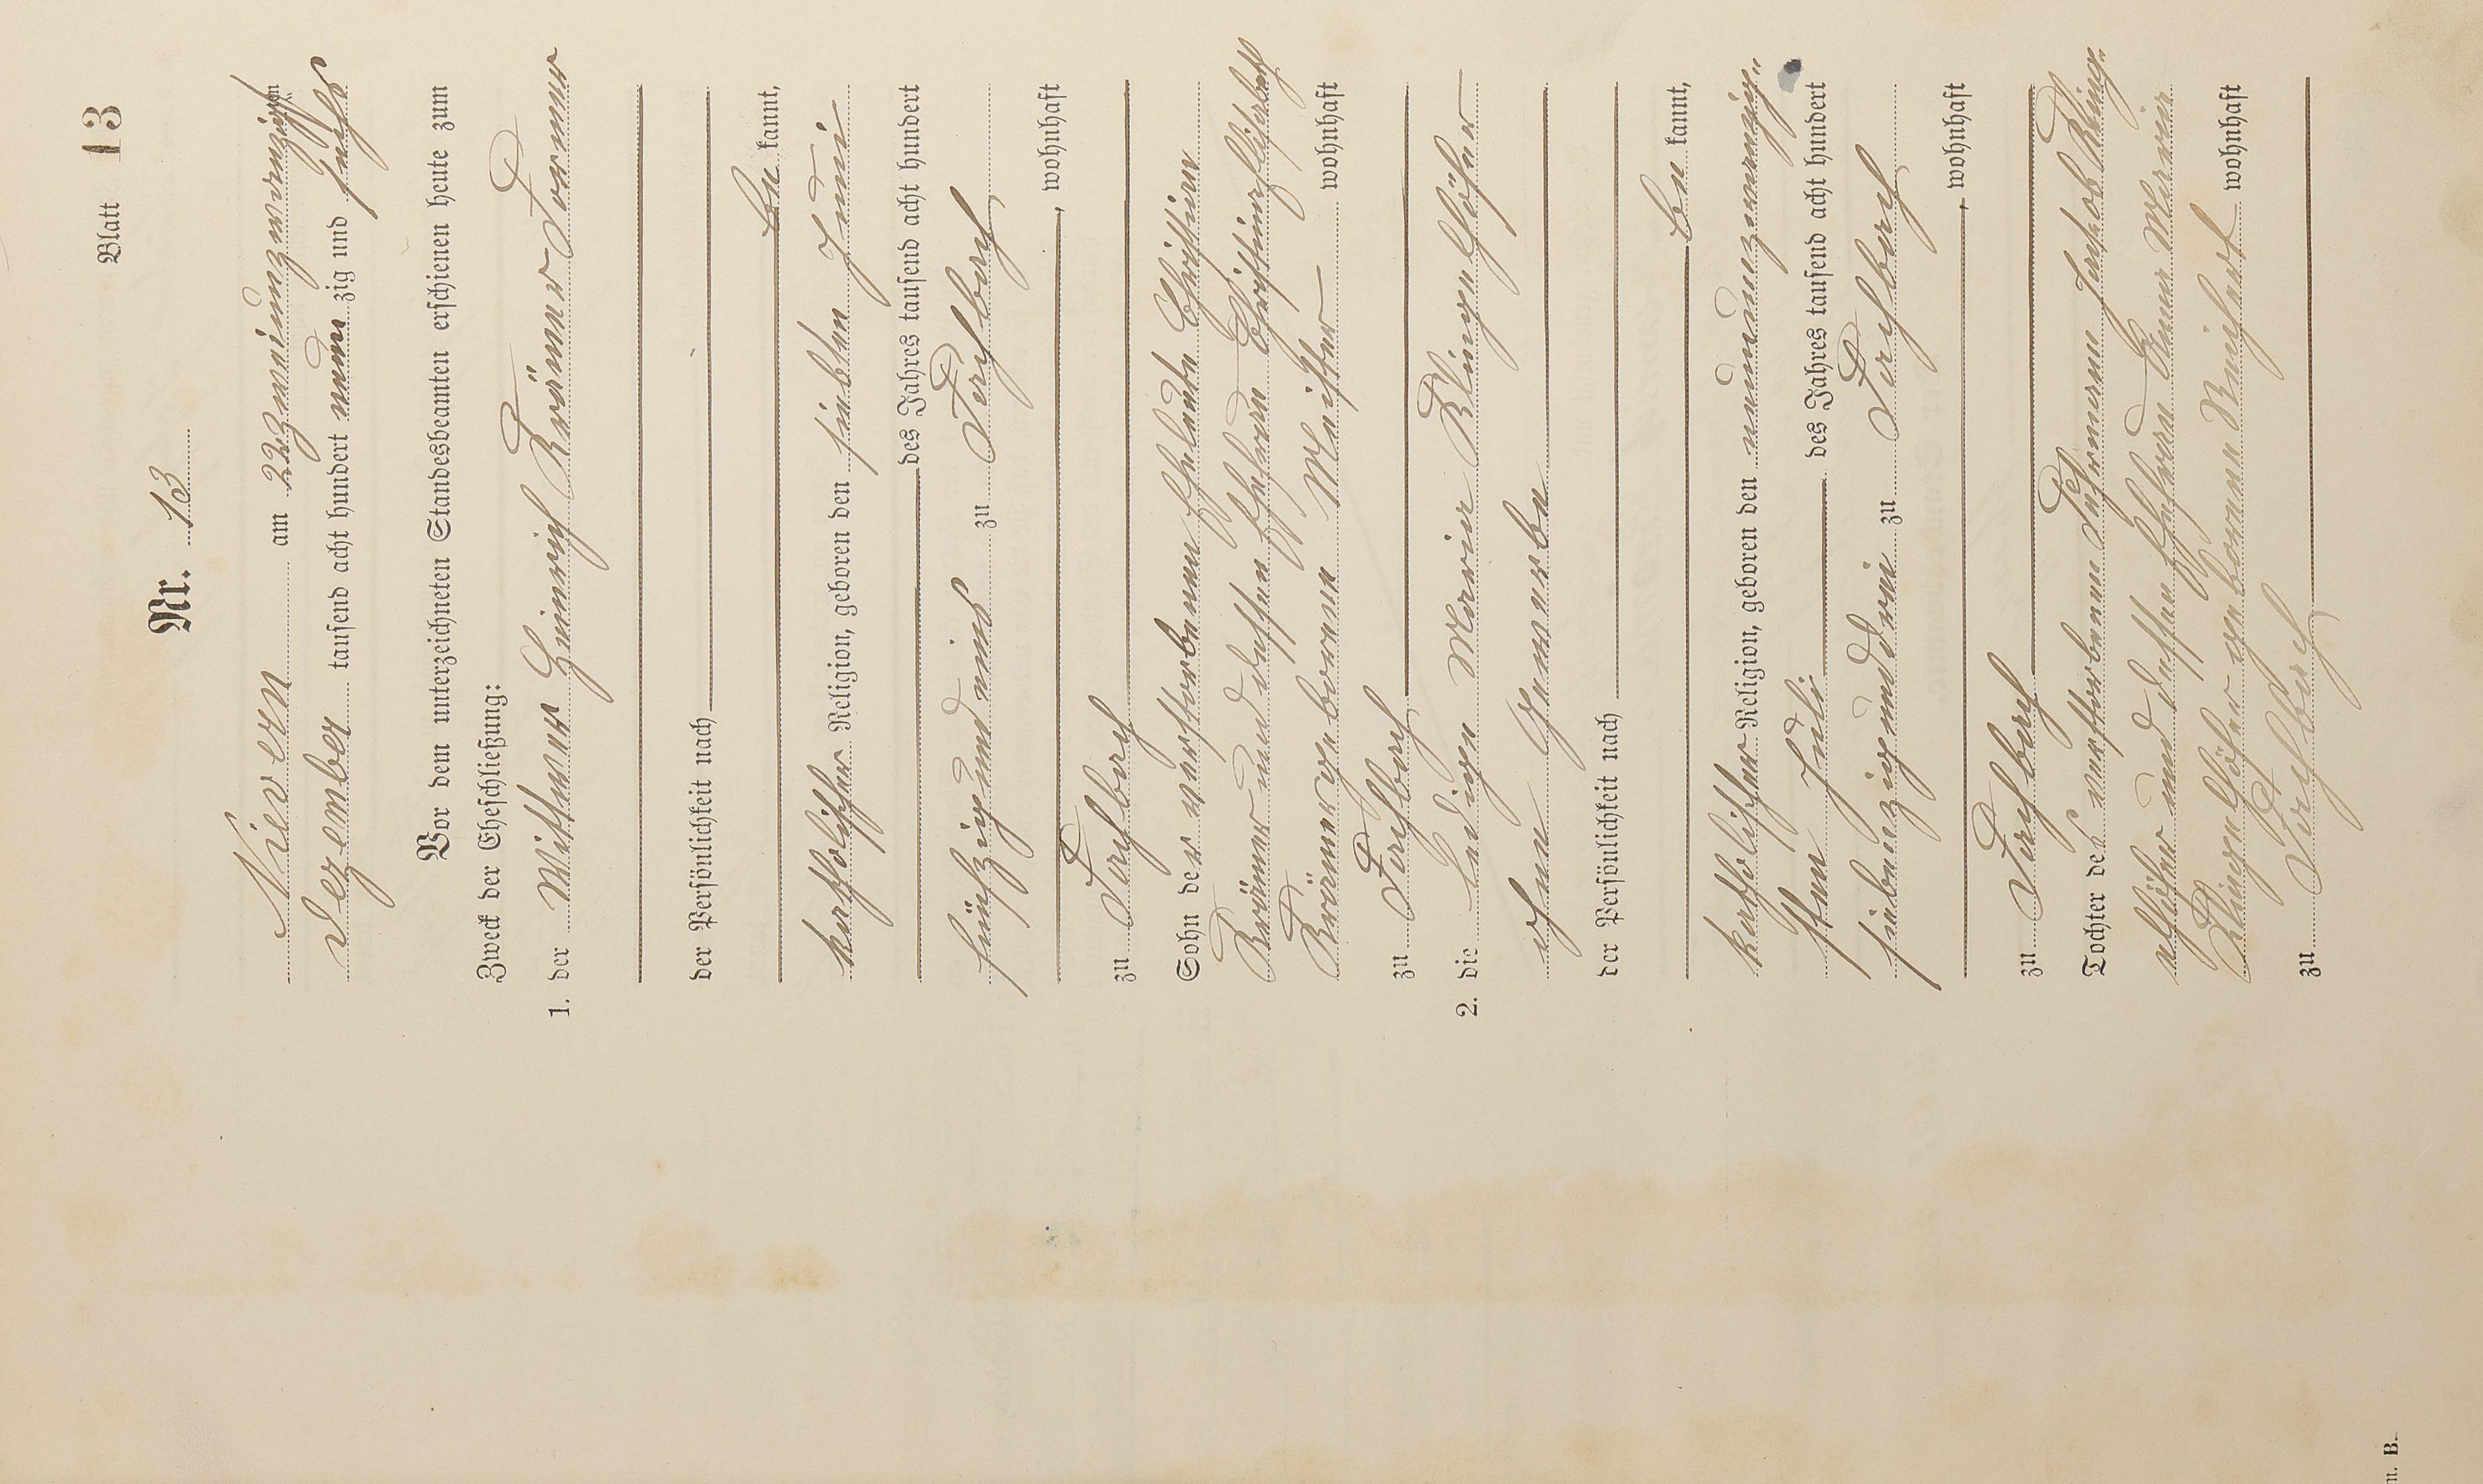 Blatt 13
Nr. 13
Nievern am 22 zweiundzwanzigsten
Dezember tausend acht hundert neunzig und sechs
Vor dem unterzeichneten Standesbeamten erschienen heute zum
Zweck der Eheschließung:
1. der Wittwer Heinrich Krämer Fermer
der Persönlichkeit nach
be kannt,
katholischer Religion, geboren den siebten Juni
des Jahres tausend acht hundert
fünfzigundeins zu Fachbach
, wohnhaft
zu Fachbach
Sohn der verstorbenen Eheleute Christian
Krämer und dessen Ehefrau
Krämer geborene Meister wohnhaft
zu Fachbach
2. die ledige Maria Klingelhöfer
ohne Gewerbe
der Persönlichkeit nach
be kannt,
katholischer Religion, geboren den neunundzwanzig„
sten Juli des Jahres tausend acht hundert
siebenzigunddrei zu Fachbach
, wohnhaft
zu Fachbach
Tochter des verstorbenen Fuhrmann Jakob Kling„
elhöfer und dessen Ehefrau Anna Maria
Klingelhöfer geborene Reichert wohnhaft
zu Fachbach
n. B.